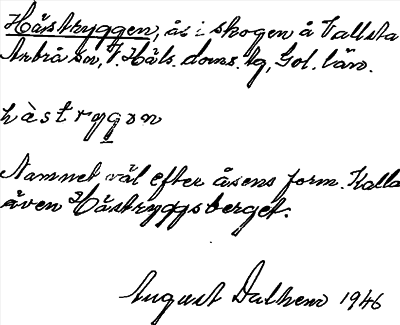 Hästryggen, ås i skogen å Vallsta
Arbrå sn, V. Häls. doms. tg, Gol. län.
hàstrygən
Namnet väl efter åsens form. Kalla
även Hästryggsberget.
August Dalhem 1946